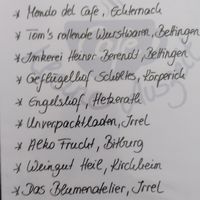 * Mondo del Cafe, Echternach
* Tom's rollende Wurstwaren, Bettingen
* Imkerei Heiner Berendt, Bettingen
* Geflügelhof Scholtes, Körperich
* Engelshof, Hetzerath
* Unverpacktladen, Irrel
* Alko Frucht, Bitburg
* Weingut Heil, Kirchheim
* Das Blumenatelier, Irrel